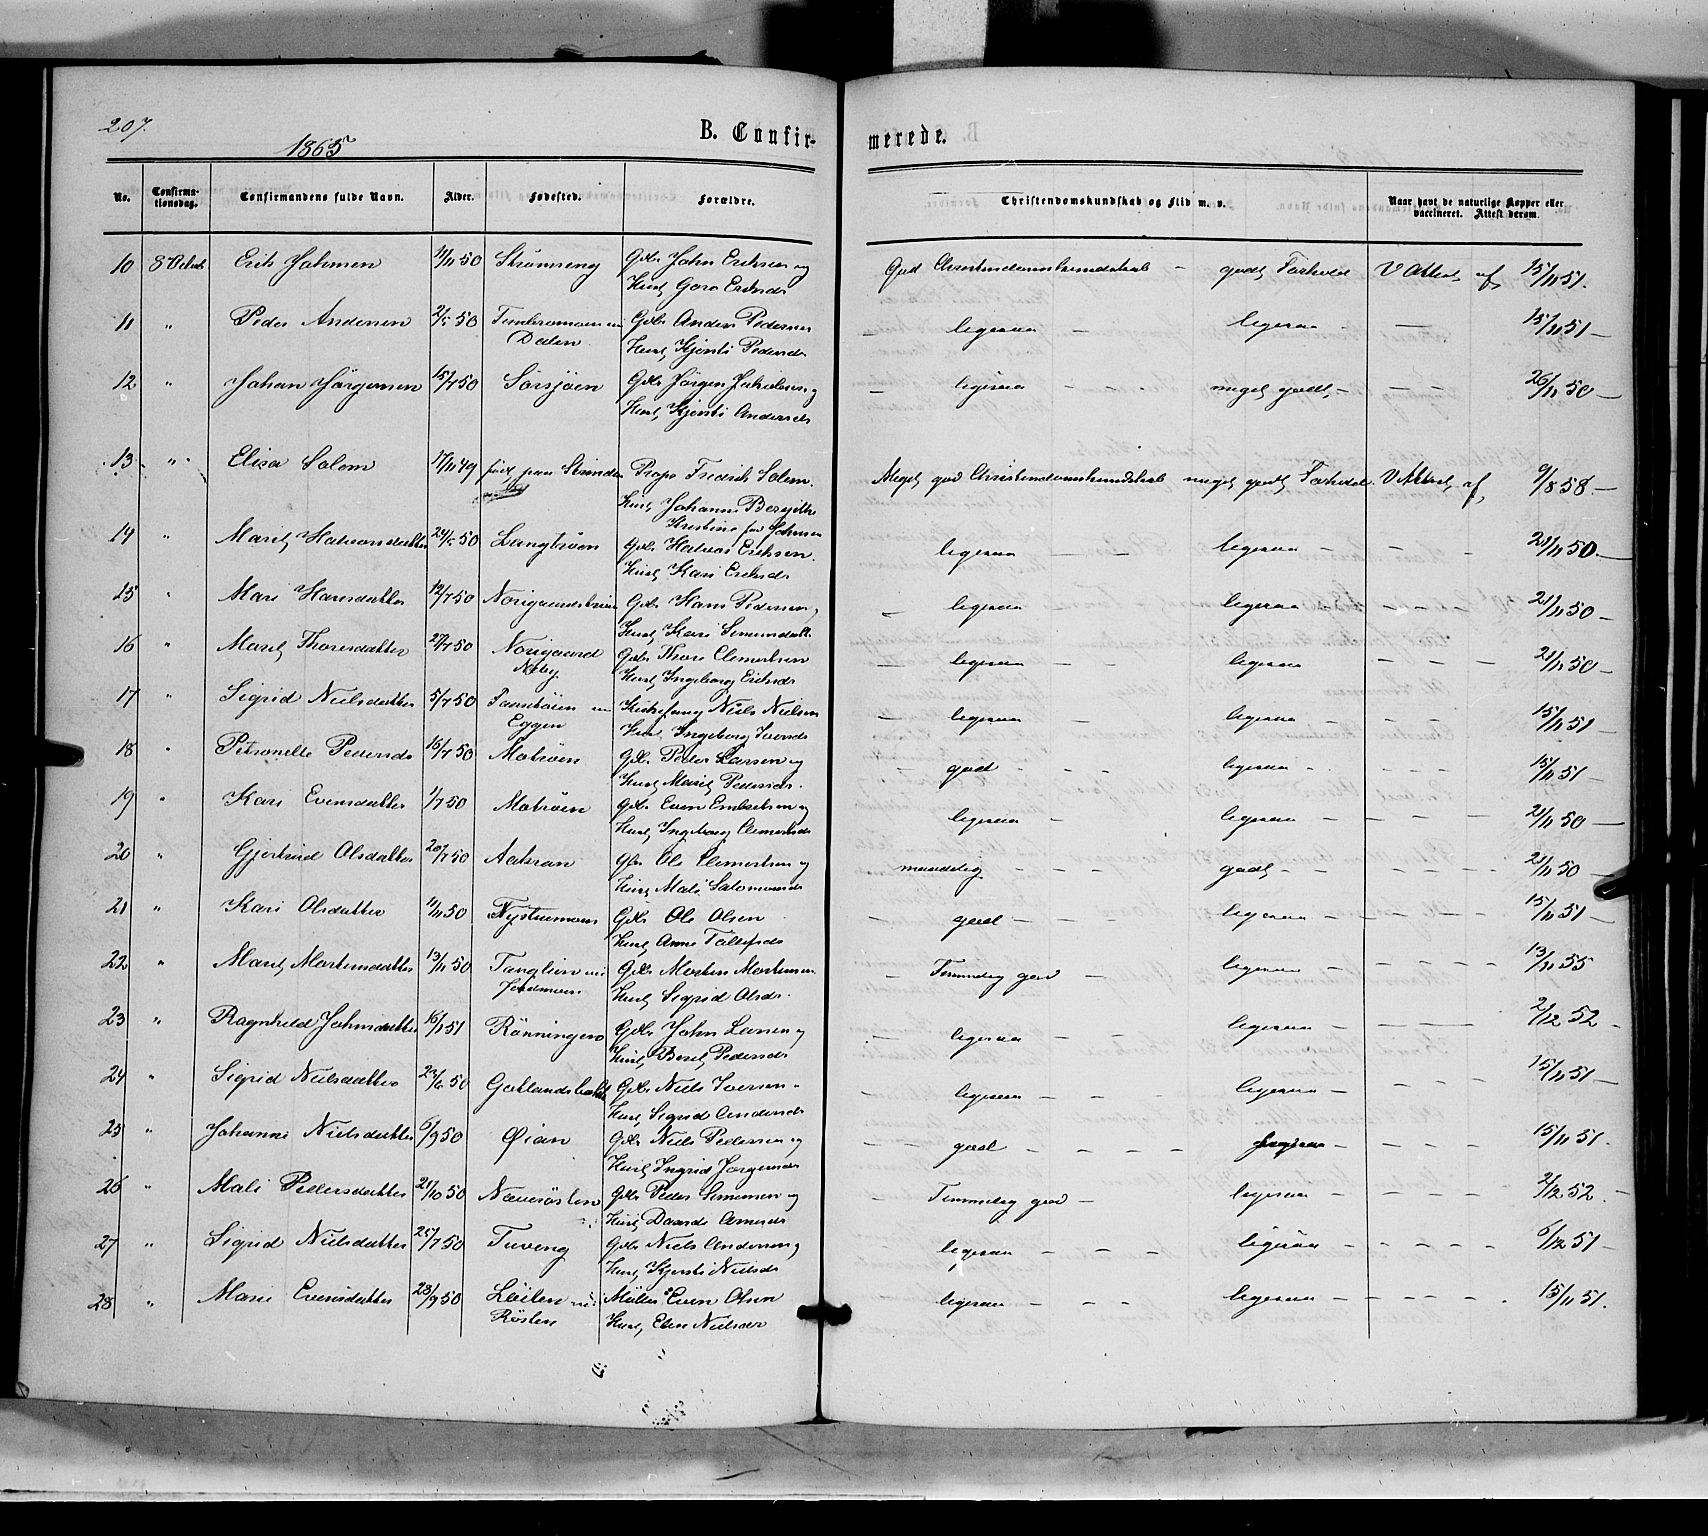 207.
1865
B. Confirmerede.
No. Confirmationsdag. Confirmandens fulde Navn. Alder. Fødested. Forældre. Christendomskundskab og Flid m. v. Naar havt de naturlige Kopper eller vaccineret. Attest derom.
10 8 Octob Erik Johnsen 11/11 50 Strømseng Gbr John Eriksen og god Christendomskundskab - godt Forhold V Attest af 15/11 51.
Hust Goro Eriksd
11 " Peder Andersen 2/5 50 Gbr Anders Pedersen - ligesaa - ligesaa - - 15/11 51 -
Dalen Hust Kjersti Pedersd
12 " Johan Jørgensen 15/7 50 Sørsjøen Gbr Jørgen Jakobsen og - ligesaa - - - meget godt, - 26/11 50 -
Hust Kjersti Andersd
13 " Elisa Salom 17/11 49 født paa Fredrik Salom. Meget god Christendomskundskab meget godt Forhold V Attest af 9/8 58. -
Hust Johanne Bergitte
Kristine
14 " Marit Halvorsdatter 24/5 50 Langbroen Gbr Halvor Eriksen. - ligesaa - - ligesaa - - - 21/11 50. -
Hust Kari Eriksd
15 " Mari Hansdatter 12/7 50 Gbr Hans Pedersen og - ligesaa - - ligesaa - - - 21/11 50
Hust Kari Simensdatt.
16 " Marit Thoresdatter 27/7 50 Norigaard Gbr Thore Clemetsen - ligesaa - - ligesaa - - - - 21/11 50 -
Næby Hust Ingeborg Eriksd
17 " Sigrid Nielsdatter 5/7 50 Niels Nielsen - ligesaa - - ligesaa - - - 15/11 51
Eggen Ingeborg Iversd
18 " Petronelle Pedersd 15/7 50 Moбrøen Gbr Peder Larsen og - god - - - ligesaa - - - 15/11 51
Hust Marit Pedersdr.
19 " Kari Evensdatter 1/7 50 Gbr Even Embretsen og ligesaa - ligesaa - - - - 21/11 50 -
Hust Ingeborg Clemetsd
20 " Gjertrud Olsdatter 20/7 50 Aakran Gbr Ole Clemetsen og maadelig - - - godt - - - - 21/11 50 -
Hust Mali Salomonsd
21 " Kari Olsdatter 11/11 50 Nystumoen Gbr Ole Olsen - god - ligesaa - - - - 15/11 51 -
Hust Anne Tollefsd
22 " Marit Mortensdatter 13/11 50 Tanglien Gbr Morten Mortensen - Temmelig god - ligesaa - - - 13/11 55
Hust Sigrid Olsdr.
23 " Ragnhild Johnsdatter 16/1 51 Rønningen Gbr John Larsen og - ligesaa - ligesaa - - 2/12 52 -
Hust Berit Pedersdr
24 " Sigrid Nielsdatter 23/6 50 Gbr Niels Iversen - ligesaa - - ligesaa - - - - 15/11 51 -
Hust Sigrid Andersd
25 " Johanne Nielsdatter 6/9 50 Øian Gbr Niels Pedersen og - god - - - - ligesaa - - - - 15/11 51.
Hust Ingrid Jørgensd
26 " Mali Pedersdatter 21/10 50 Næverøsten Gbr Peder Simensen og - Temmelig god - ligesaa - - - - 2/12 52. -
Hust Arnesdr
27 " Sigrid Nielsdatter 25/7 50 Tuveng Gbr Niels Andersen og - ligesaa - - - ligesaa - - - - 6/12 51 -
Hust Kjersti Nielsdr
28 " Marie Evensdatter 23/9 50 Møller Even Olsen - ligesaa - - - ligesaa - - - - - 15/11 51.
Røsten Hust Elen Nielsdr